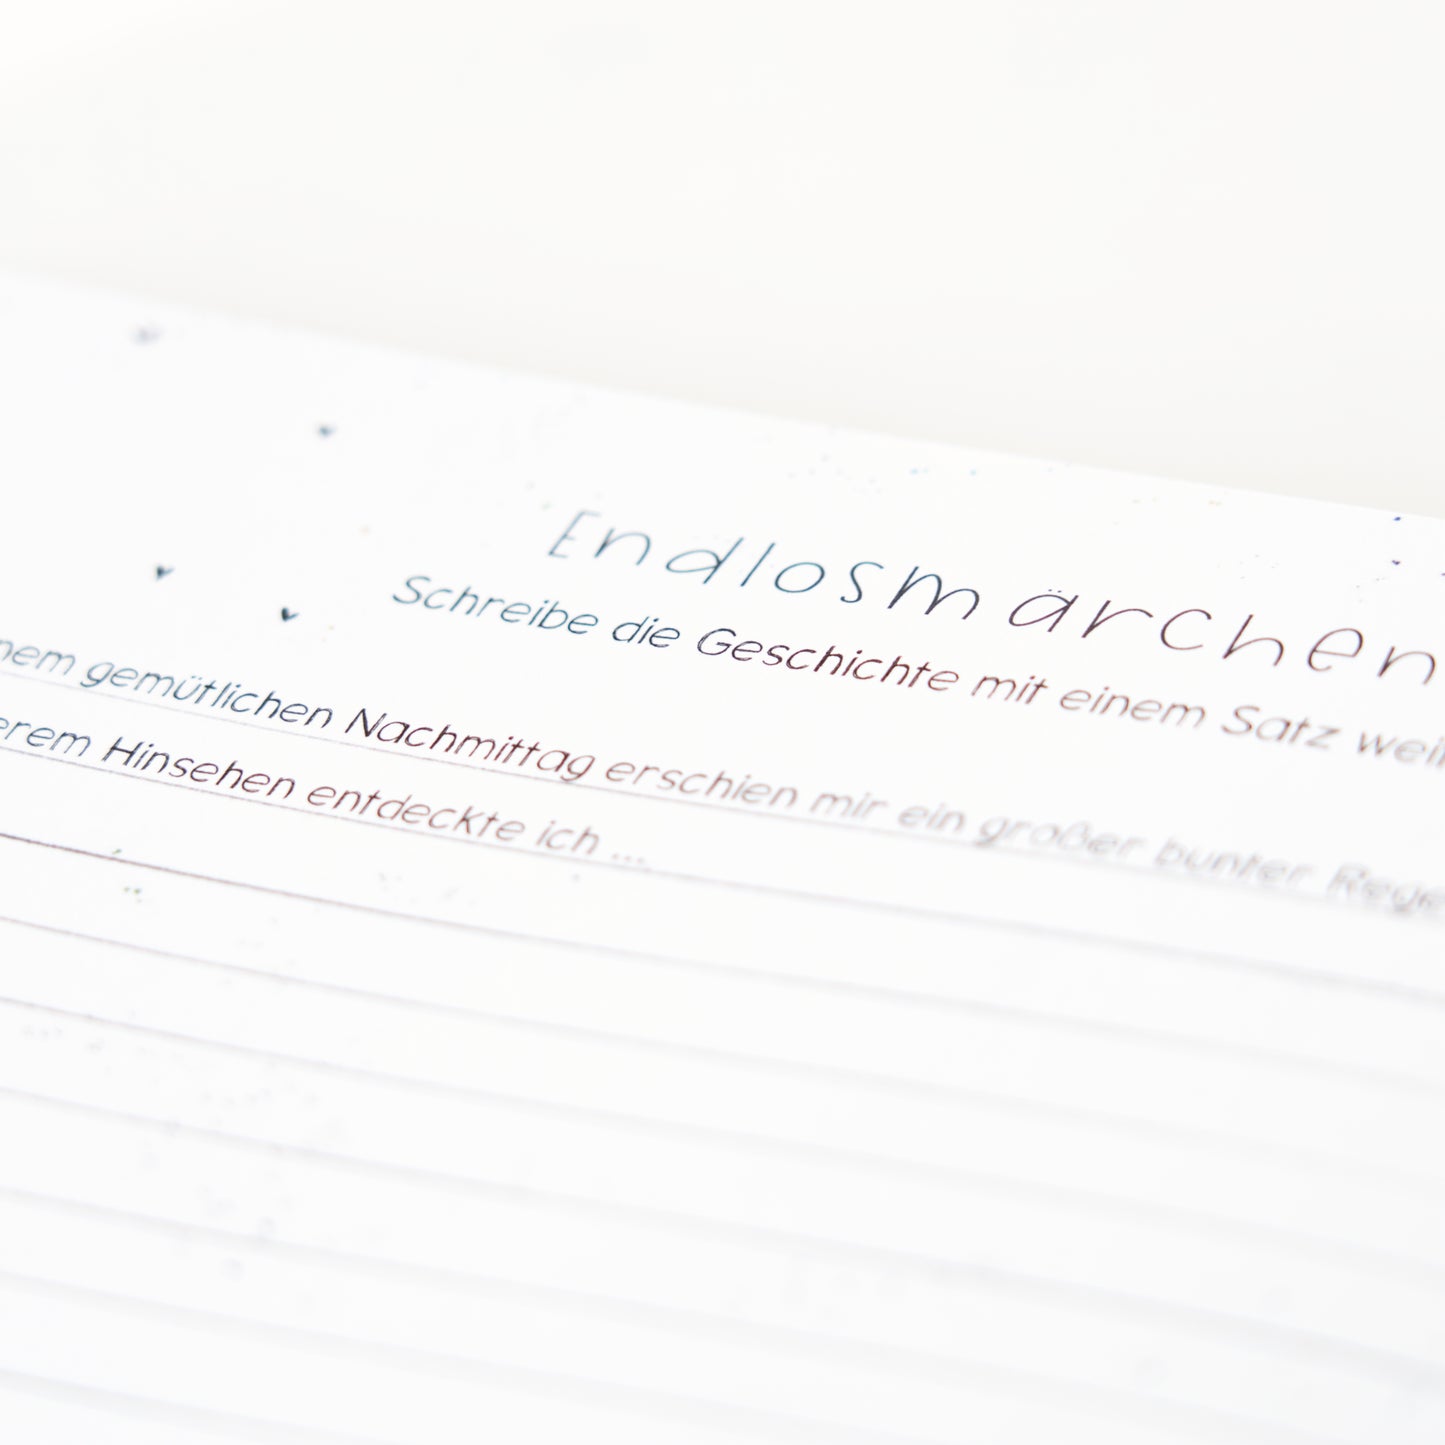 Endlosmärchen
Schreibe die Geschichte mit einem Satz
gemütlichen Nachmittag erschien mir ein großer bunter
Hinsehen entdeckte ich ...